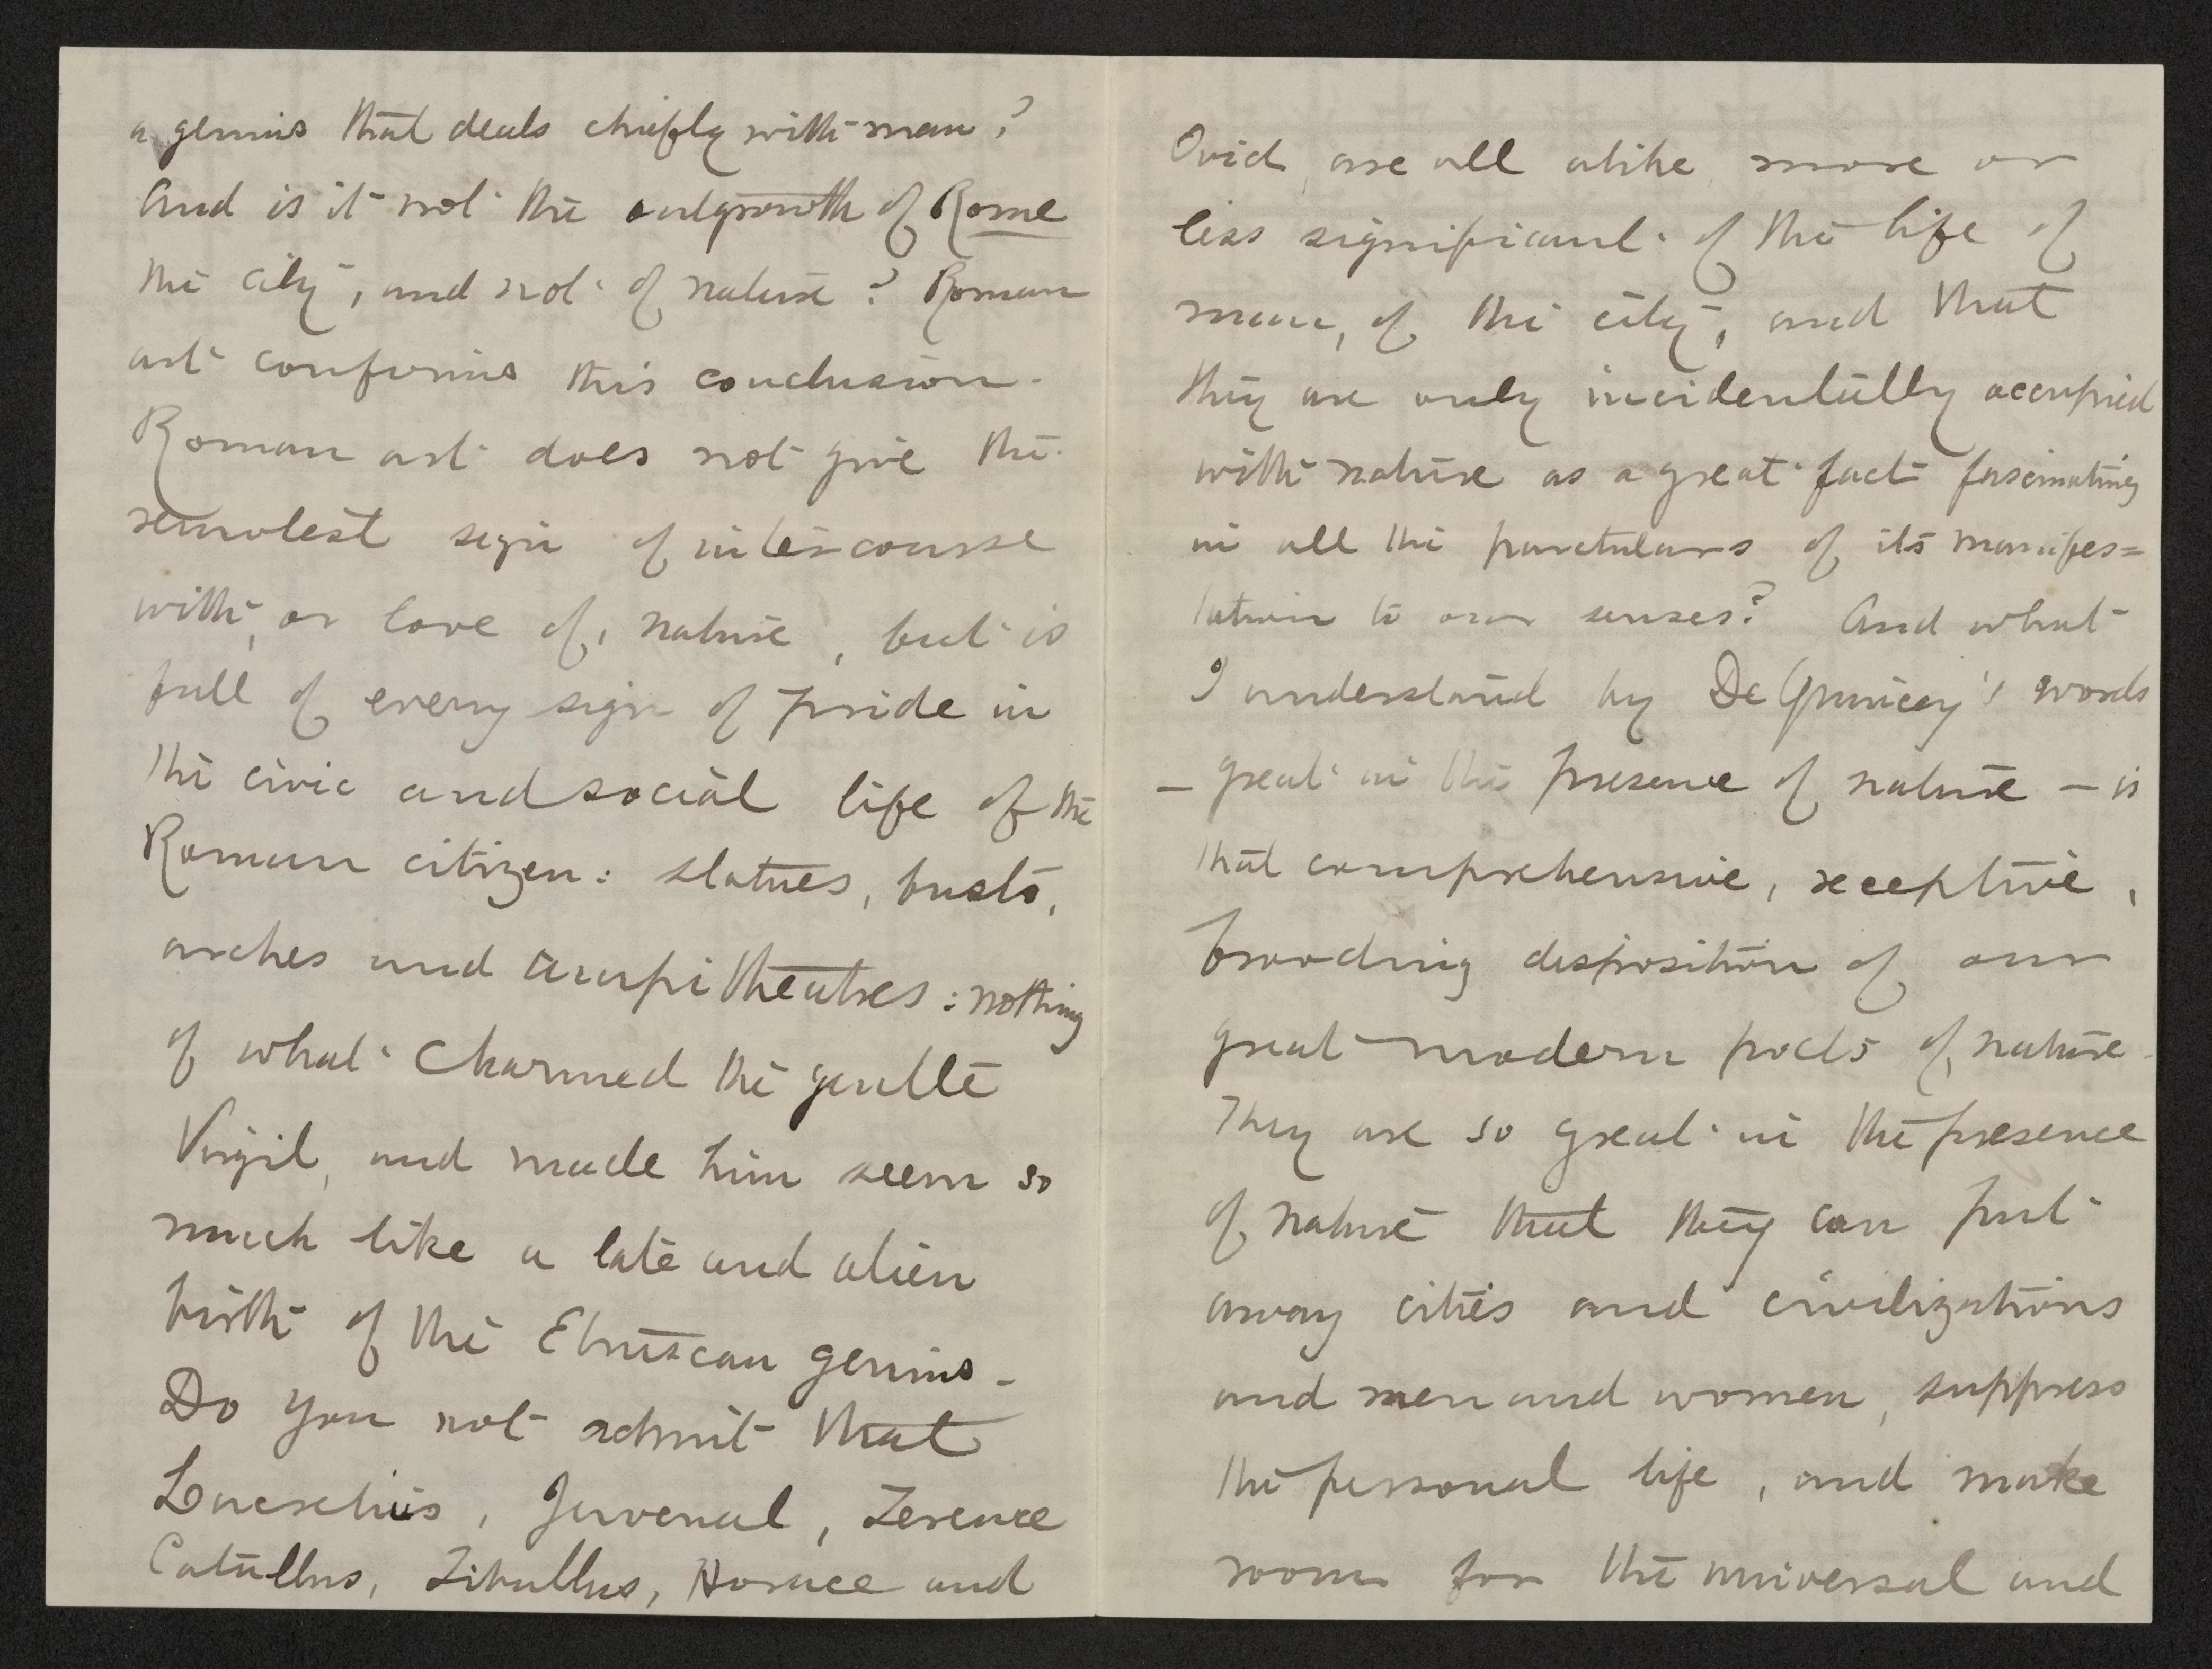 a genius that deals chiefly with man?
And is it not the outgrowth of Rome
the city, and not of nature? Roman
art confirms this conclusion.
Roman art does not give the
remotest sign of intercourse
with, or love of, nature, but is
full of every sign of pride in
the civic and social life of the
Roman citizen: statues, busts,
arches and ampitheatres: nothing
of what charmed the gentle
Virgil, and made him seem so
much like a late and alien
birth of the Etruscan genius.
Do you not admit that
Lucretius, Juvenal, Terence
Catullus, Tibullus, Horace and
Ovid, are all alike more or
less significant of the life of
man, of the city, and that
they are only incidentally occupied
with nature as a great fact fascinating
in all the particulars of its manifes=
tation to our senses? And what
I understand by De Quincey's words
— great in the presence of nature — is
that comprehensive, receptive,
brooding disposition of our
great modern poets of nature.
They are so great in the presence
of nature that they can put
away cities and civilizations
and men and women, suppress
the personal life, and make
room for the universal and